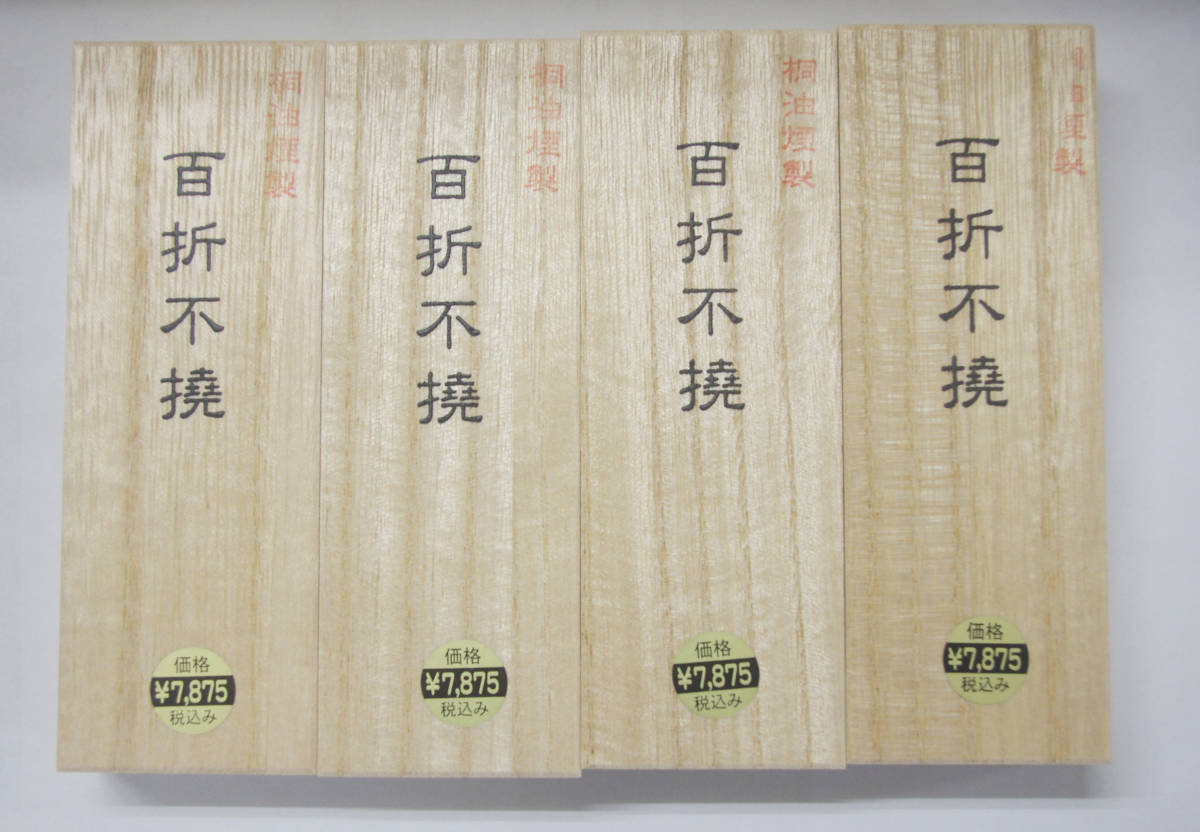 桐油煙製
百折不撓
価格
¥7,875
税込み
桐油煙製
百折不撓
価格
¥7,875
税込み
桐油煙製
百折不撓
価格
¥7,875
税込み
製
百折不撓
価格
¥7,875
税込み